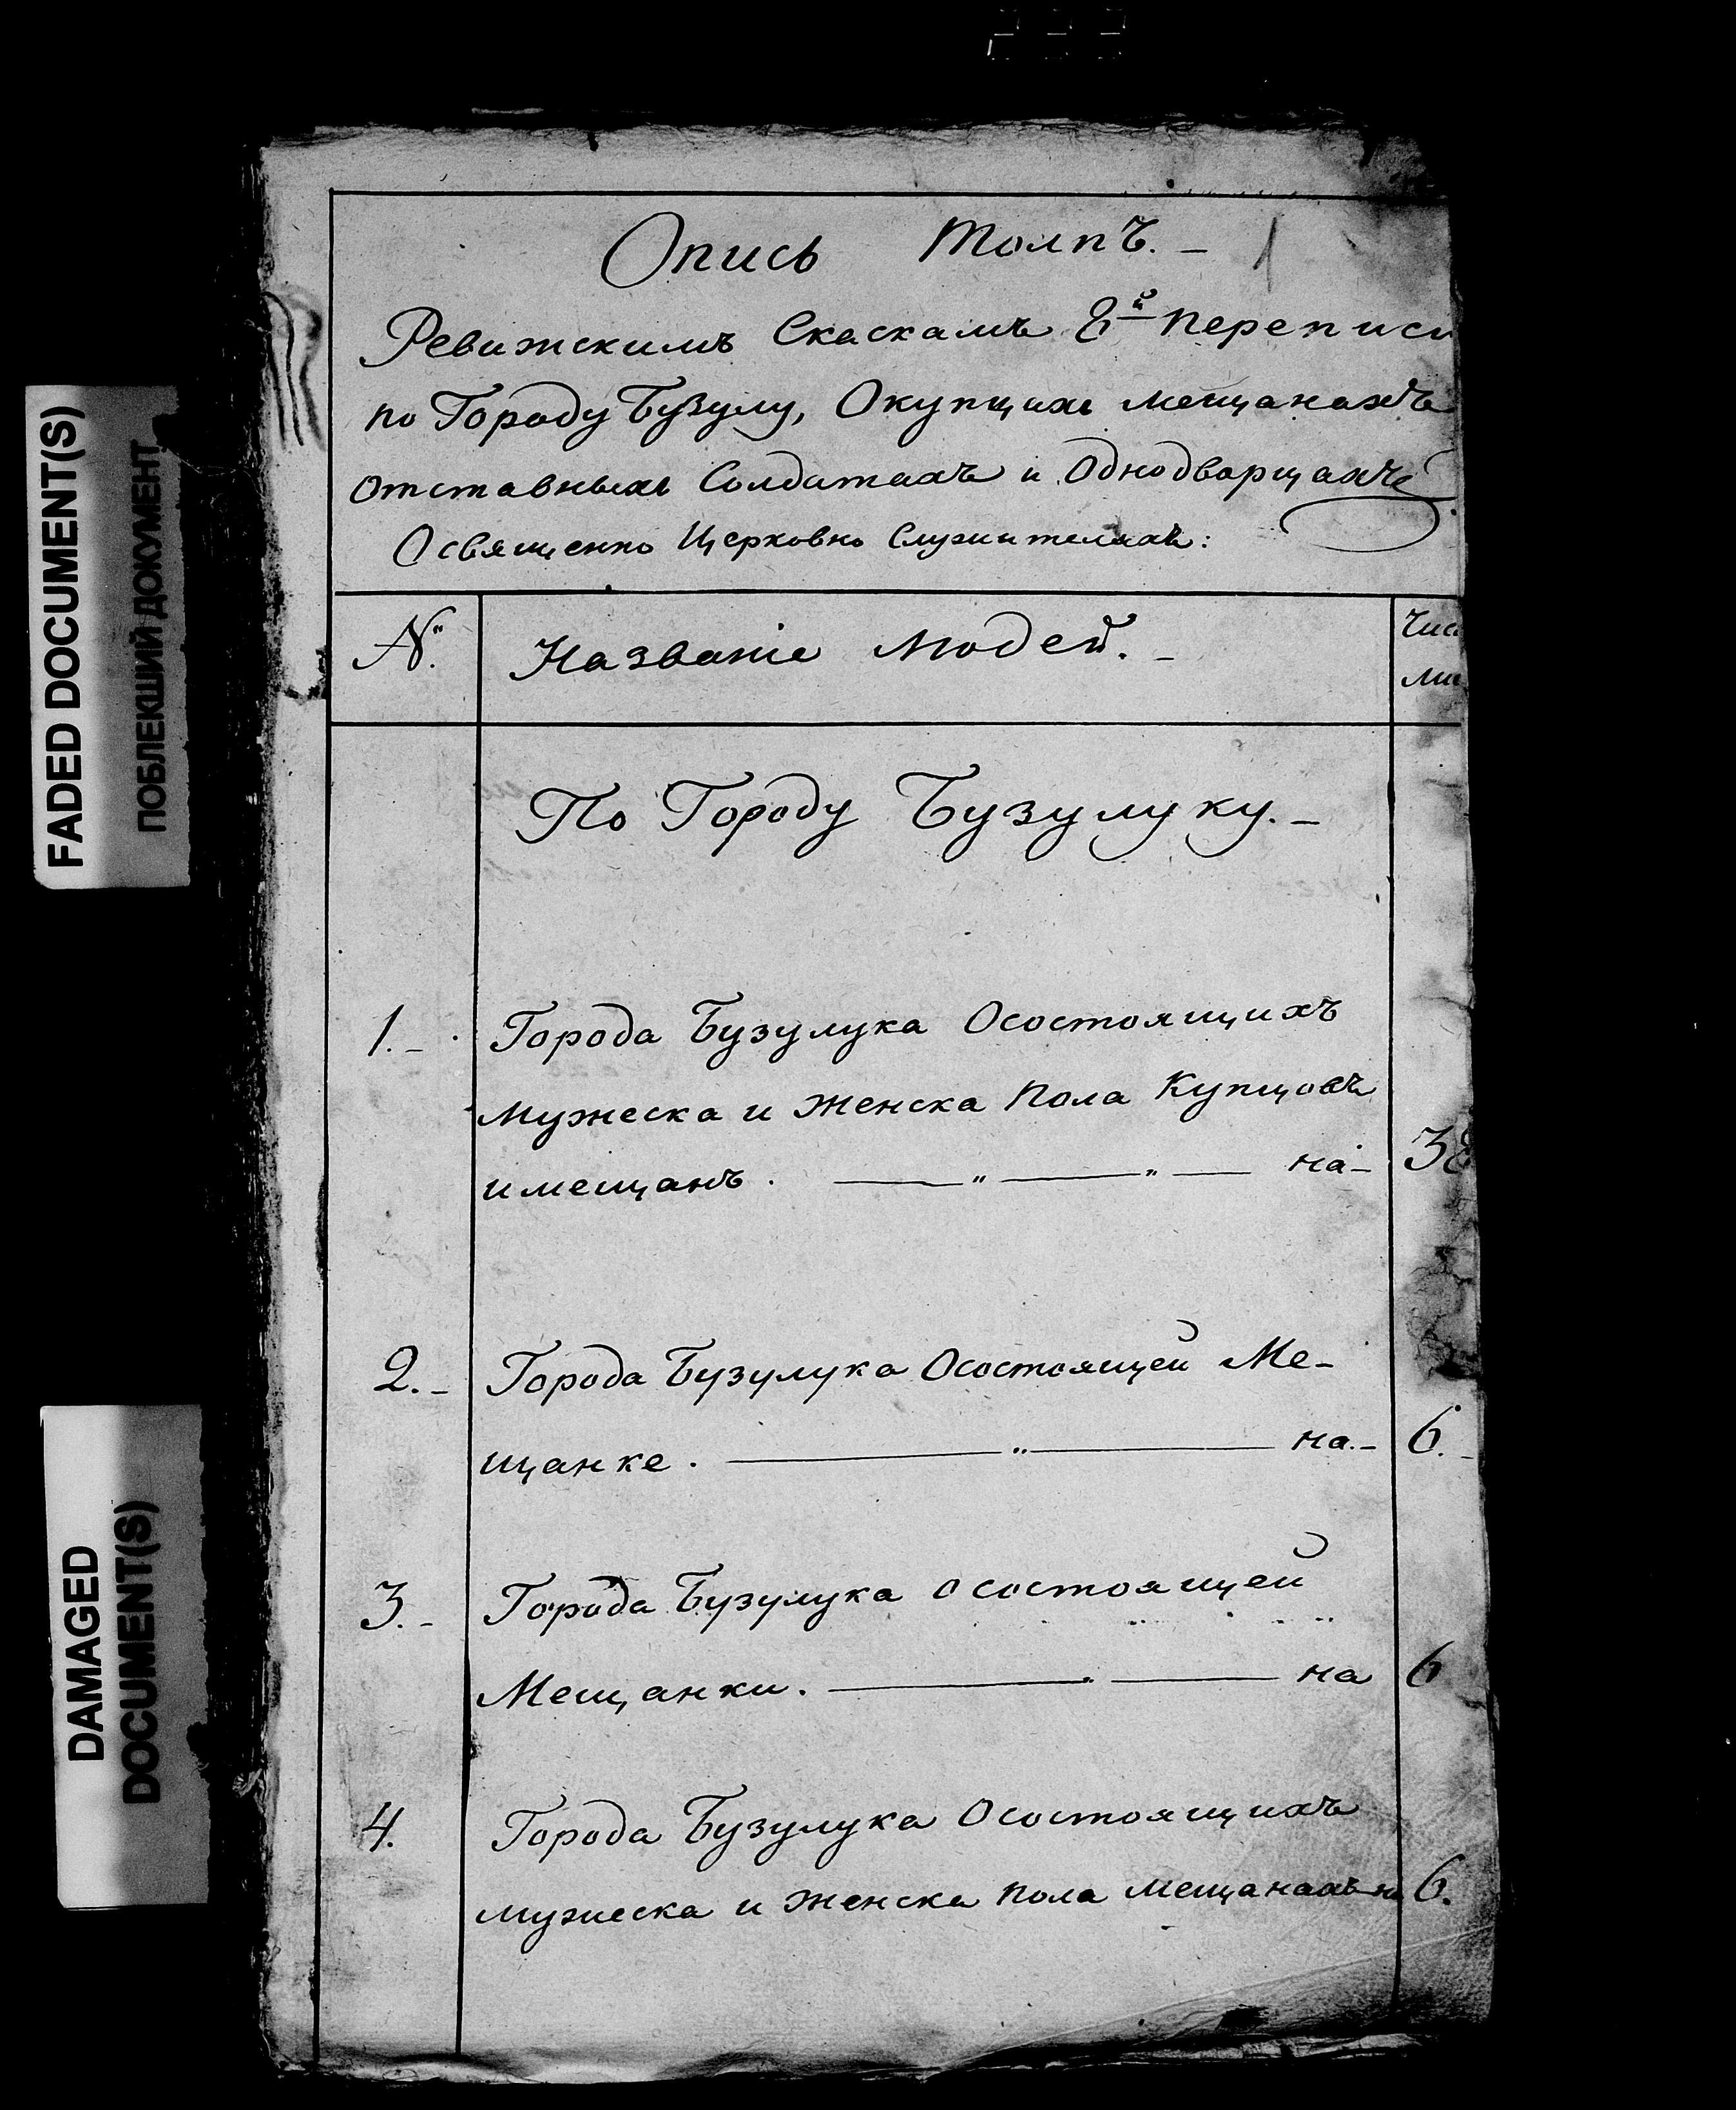 Опись толпъ. – 1
Ревижскимъ Скаскамъ 8й переписи
по Городу Бузулу, Окупцихъ мещанахъ
отставныхъ Солдатахъ и Однодворцахъ
Освященно Церковно Служителяхъ:
№. Названіе людей. – Чис
ли
По Городу Бузулуку. –
1. – Города Бузулука Осостоящихъ
мужеска и женска пола Купцовъ
имещанъ. — " — " — на – 38
2. – Города Бузулука Осостоящей Ме-
щанке. — " — на. – 6. –
3. – Города Бузулука осостоящей
Мещанки. — " — на 6
4. Города Бузулука Осостоящихъ
мужеска и женска пола мещанахъ на 6.
FADED DOCUMENT(S)
ПОБЛЕКШИЙ ДОКУМЕНТ
DAMAGED
DOCUMENT(S)